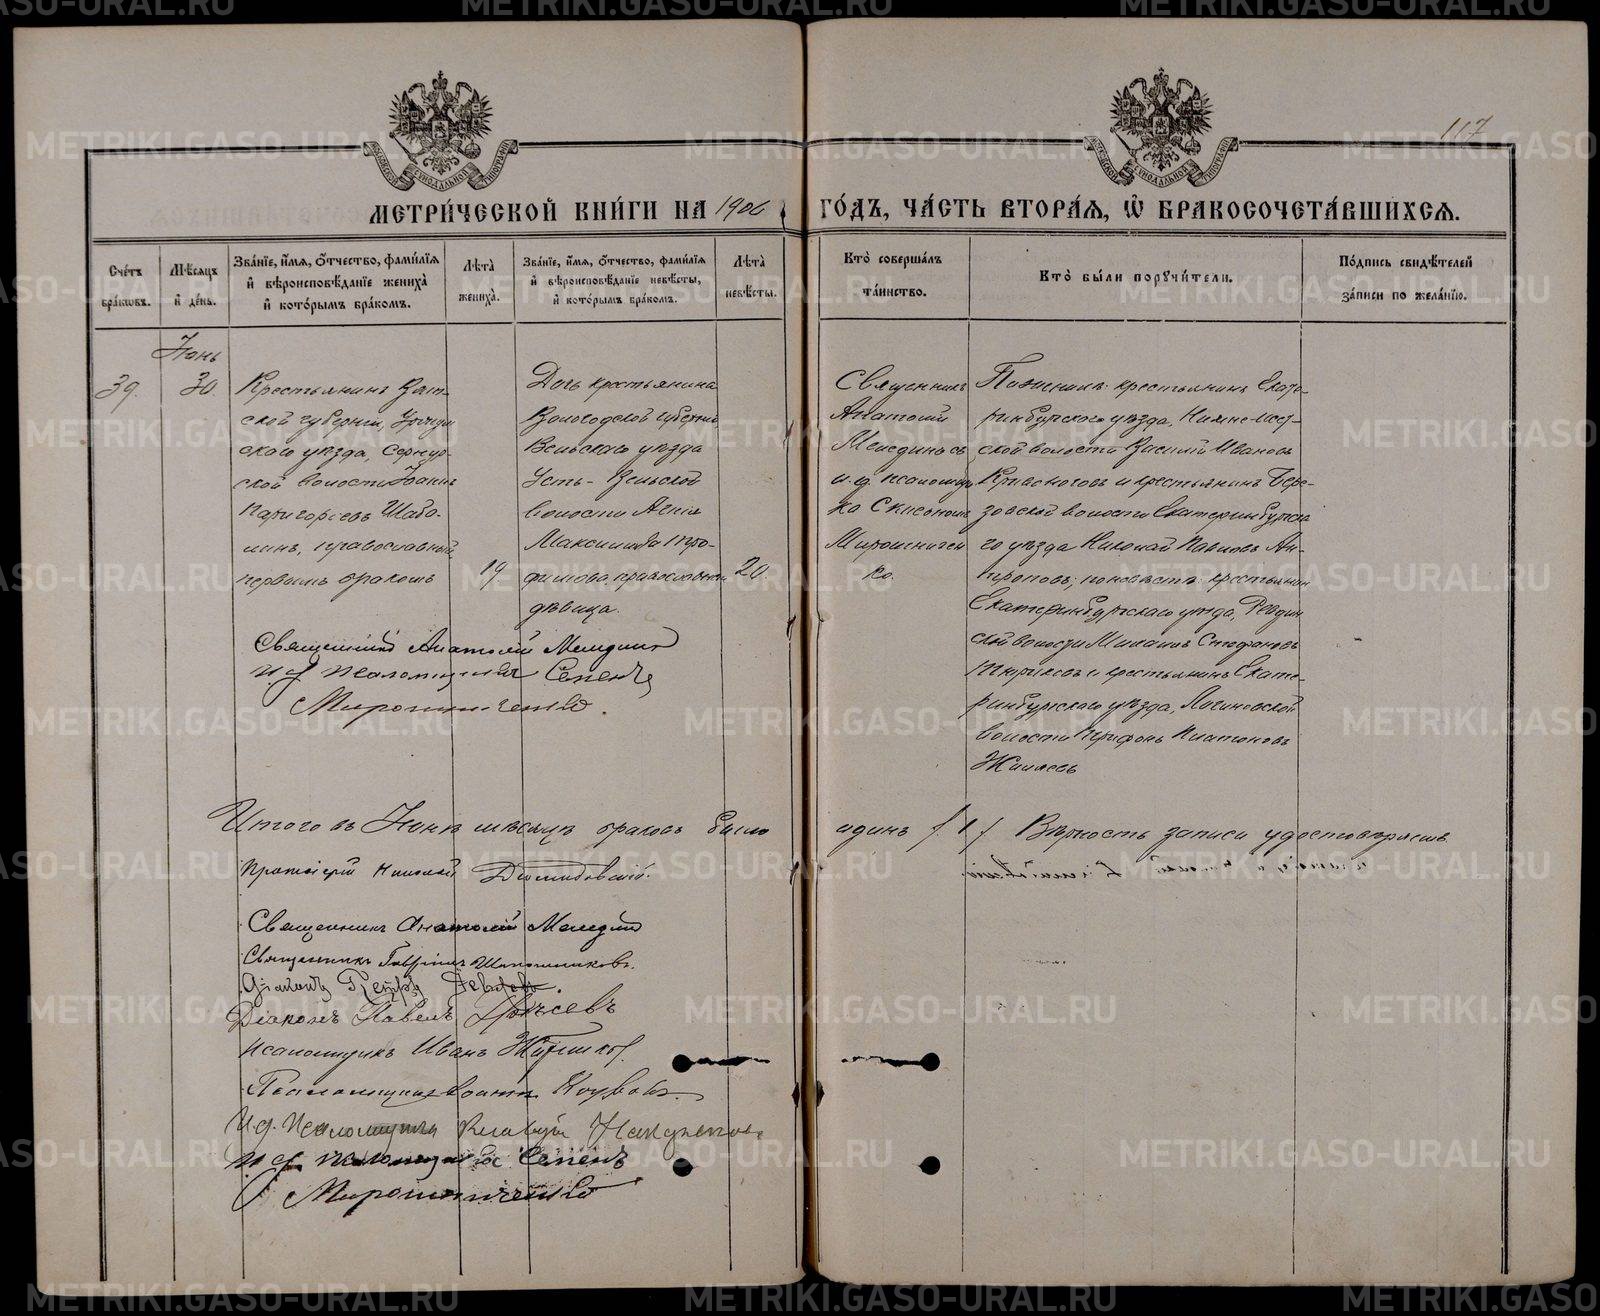 117
МЕТРИ́ЧЕСКОЙ КНИ́ГИ НА 1906 ГО́ДЪ, ЧА́СТЬ ВТОРА́Я, Ѡ҆ БРАКОСОЧЕТА́ВШИХСЯ.
Сче́тъ бра́ковъ.
Мѣ́сяцъ и де́нь.
Зва́нїе, и́мя, о́тчество, фами́лїя и вѣроисповѣ́данїе жениха̀ и кото́рымъ бра́комъ.
Лѣ́та жениха̀.
Зва́нїе, и́мя, о́тчество, фами́лїя и вѣроисповѣ́данїе невѣ́сты, и кото́рымъ бра́комъ.
Лѣ́та невѣ́сты.
Кто̀ соверша́лъ та́инство.
Кто̀ бы́ли поручи́тели.
По́дпись свидѣ́телей за́писи по жела́нїю.
Іюнь
39.
30.
Крестьянинъ Вят-
ской губерніи, Уржум
скаго уѣзда, Сернур-
ской волости Іоаннъ
Григорьевъ Шабо-
линъ, православный,
первымъ бракомъ
19.
Дочь крестьянина
Вологодской губерніи
Вельскаго уѣзда
Усть-Вельской
волости
Максимова Тро-
фимова, православная,
дѣвица.
20.
Священникъ
Анатолій
Мелединъ съ
и.д. псаломщи
ка Симеономъ
Мирошничен
ко.
крестьянинъ Екате-
ринбургскаго уѣзда, Нижне-Исет-
ской волости Василій Ивановъ
Кривоноговъ и крестьянинъ Бере-
зовской волости Екатеринбургска
го уѣзда Николай Павловъ Ан-
троповъ; по невѣстѣ: крестьянинъ
Екатеринбургскаго уѣзда, Ревдин
ской волости Стефановъ
и крестьянинъ Екате-
ринбургскаго уѣзда, Логиновской
волости Трифонъ Платоновъ
Священникъ Анатолій Мелединъ
и д псаломщика Семенъ
Мирошниченко.
Итого въ Іюнѣ мѣсяцѣ браковъ было одинъ /1/ Вѣрность записи удостовѣряемъ
Протоіерей Николай Діомидовскій.
Священникъ Анатолій Мелединъ
Священникъ Гавріилъ Шапошниковъ.
Діаконъ Петръ
Діаконъ Павелъ
Псаломщикъ Иванъ
Псаломщикъ
И.д. Псаломщика
и д псаломщика Семенъ
Мирошниченко
METRIKI.GASO-URAL.RU